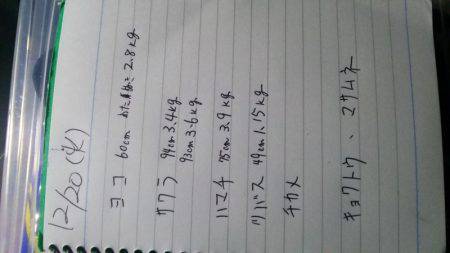 12/20 (火)
ヨコ 60cm わた抜きで 2.8kg
サワラ 94cm 3.4kg
93cm 3.6kg
ハマチ 75cm 3.9kg
ツバス 49cm 1.15kg
チカメ
キョクトウ、マサムネ